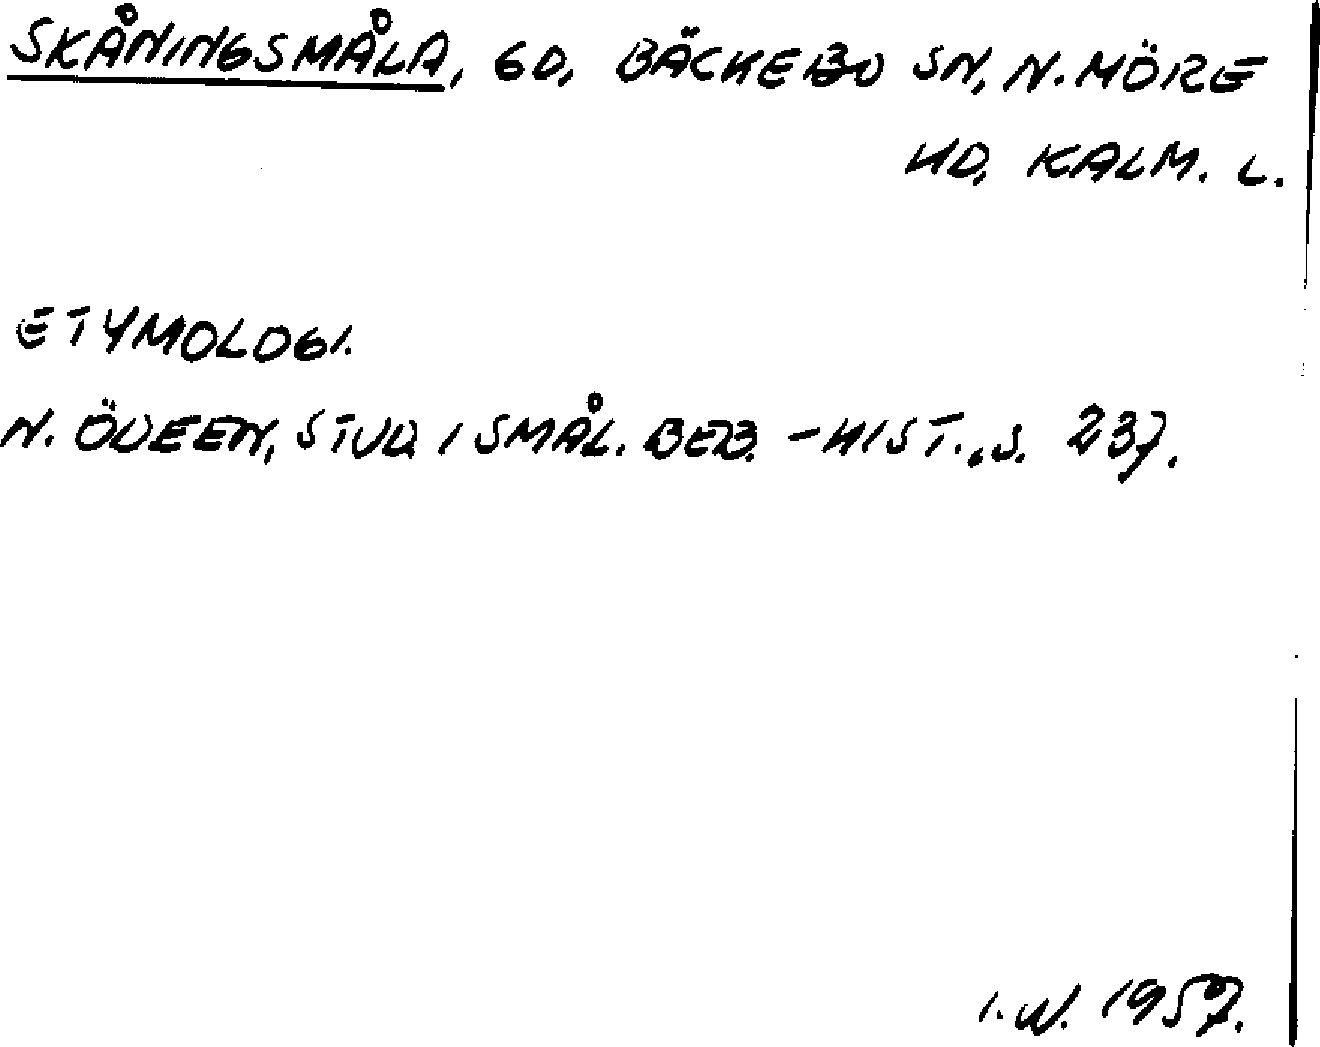 SKÅNINGSMÅLA, GD, BÄCKEBO SN, N. MÖRE
HD, KALM. L.
ETYMOLOGI.
N. ÖDEEN, STUD. I SMÅL. BEB. -HIST., S. 237.
I. W. 1957.